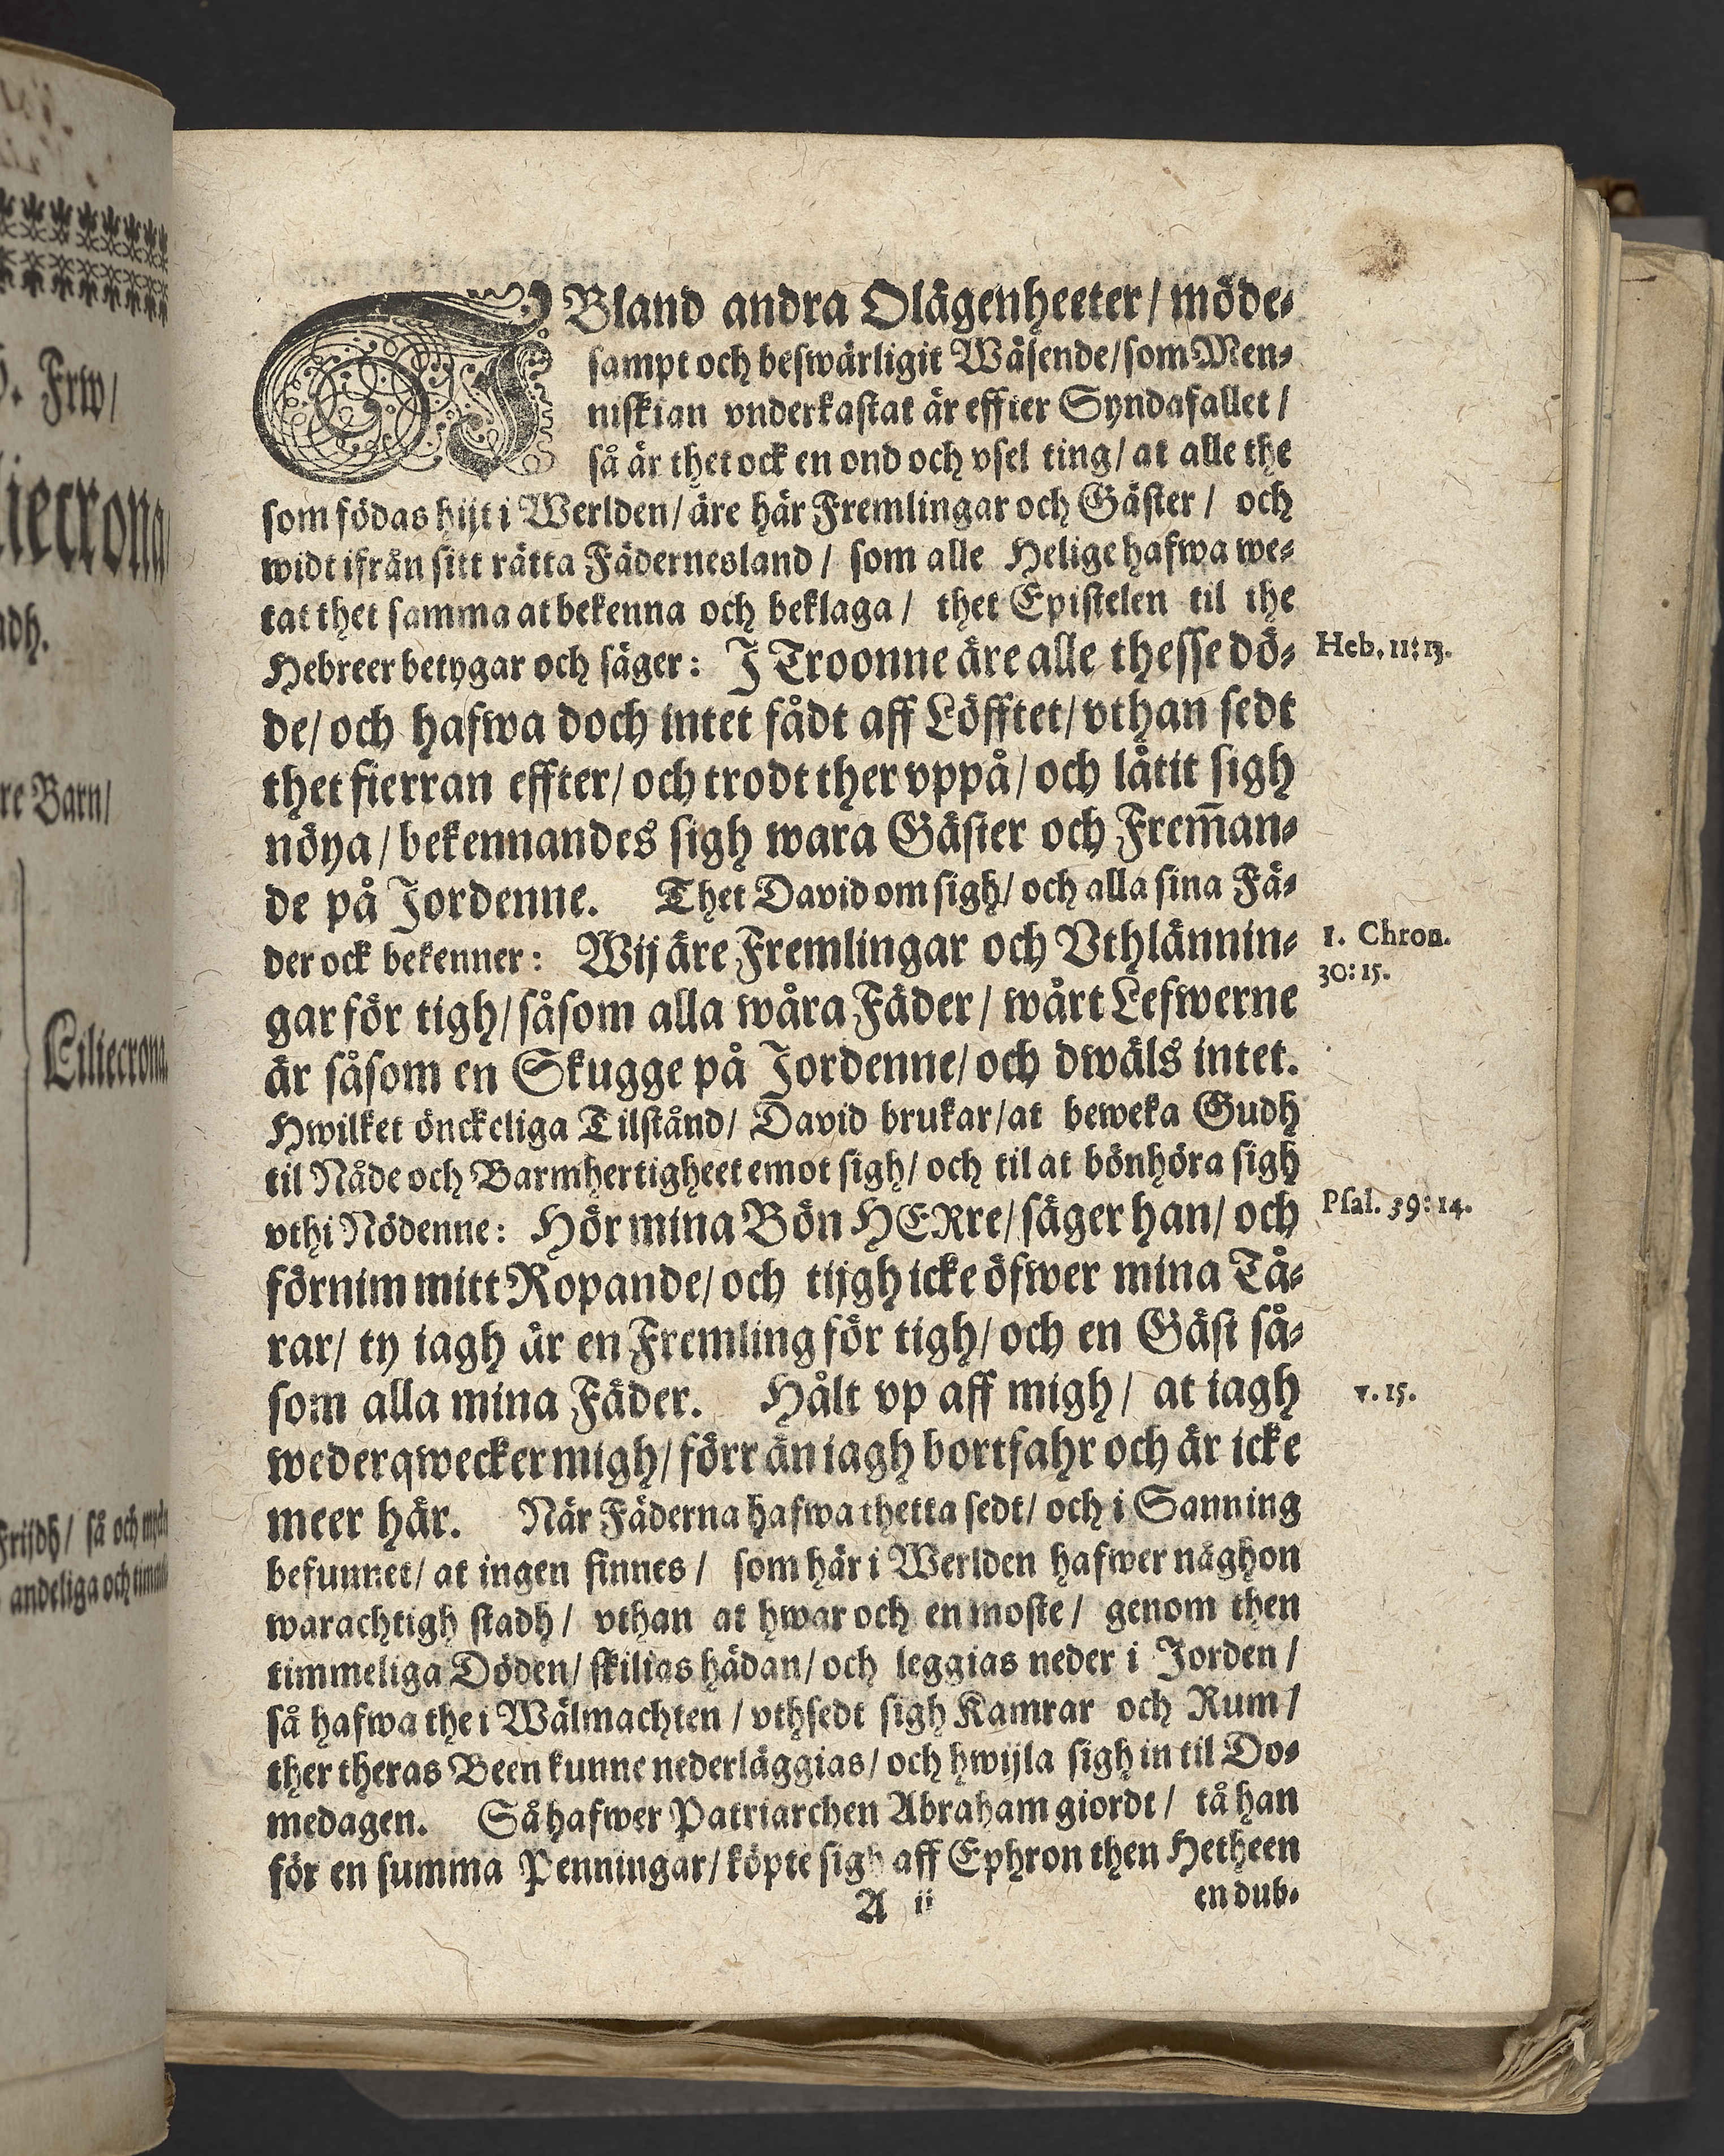 . Friw/
iecrona
adh.
re Barn/
Liliecrona.
Frijdh/ så och
andeliga och
IBland andra Olägenheeter/ möde-
sampt och beswärligit Wäsende/ som Men-
niskian vnderkastat är effter Syndafallet/
så är thet ock en ond och vsel ting/ at alle the
som födas hijt i Werlden/ äre här Fremlingar och Gäster/ och
widt ifrån sitt rätta Fädernesland/ som alle Helige hafwa we-
tat thet samma at bekenna och beklaga/ thet Epistelen til the
Hebreer betygar och säger: J Troonne äre alle thesse dö-
Heb. 11:13.
de/ och hafwa doch intet fådt aff Löfftet/ vthan sedt
thet fierran effter/ och trodt ther vppå/ och låtit sigh
nöya/ bekennandes sigh wara Gäster och Frem̃an-
de på Jordenne. Thet David om sigh/ och alla sina Fä-
der ock bekenner: Wij äre Fremlingar och Vthlännin-
1. Chron.
30:15.
gar för tigh/ såsom alla wåra Fäder/ wårt Lefwerne
är såsom en Skugge på Jordenne/ och dwäls intet.
Hwilket önckeliga Tilstånd/ David brukar/ at beweka Gudh
til Nåde och Barmhertigheet emot sigh/ och til at bönhöra sigh
vthi Nödenne: Hör mina Bön HERre/ säger han/ och
Psal. 39:14.
förnim mitt Ropande/ och tijgh icke öfwer mina Tå-
rar/ ty iagh är en Fremling för tigh/ och en Gäst så-
som alla mina Fäder. Hålt vp aff migh/ at iagh
v. 15.
wederqwecker migh/ förr än iagh bortfahr och är icke
meer här. När Fäderna hafwa thetta sedt/ och i Sanning
befunnet/ at ingen finnes/ som här i Werlden hafwer någhon
warachtigh stadh/ vthan at hwar och en moste/ genom then
timmeliga Döden/ skilias hädan/ och leggias neder i Jorden/
så hafwa the i Wälmachten/ vthsedt sigh Kamrar och Rum/
ther theras Been kunne nederläggias/ och hwijla sigh in til Do-
medagen. Så hafwer Patriarchen Abraham giordt/ tå han
för en summa Penningar/ köpte sigh aff Ephron then Hetheen
A ii
en dub-